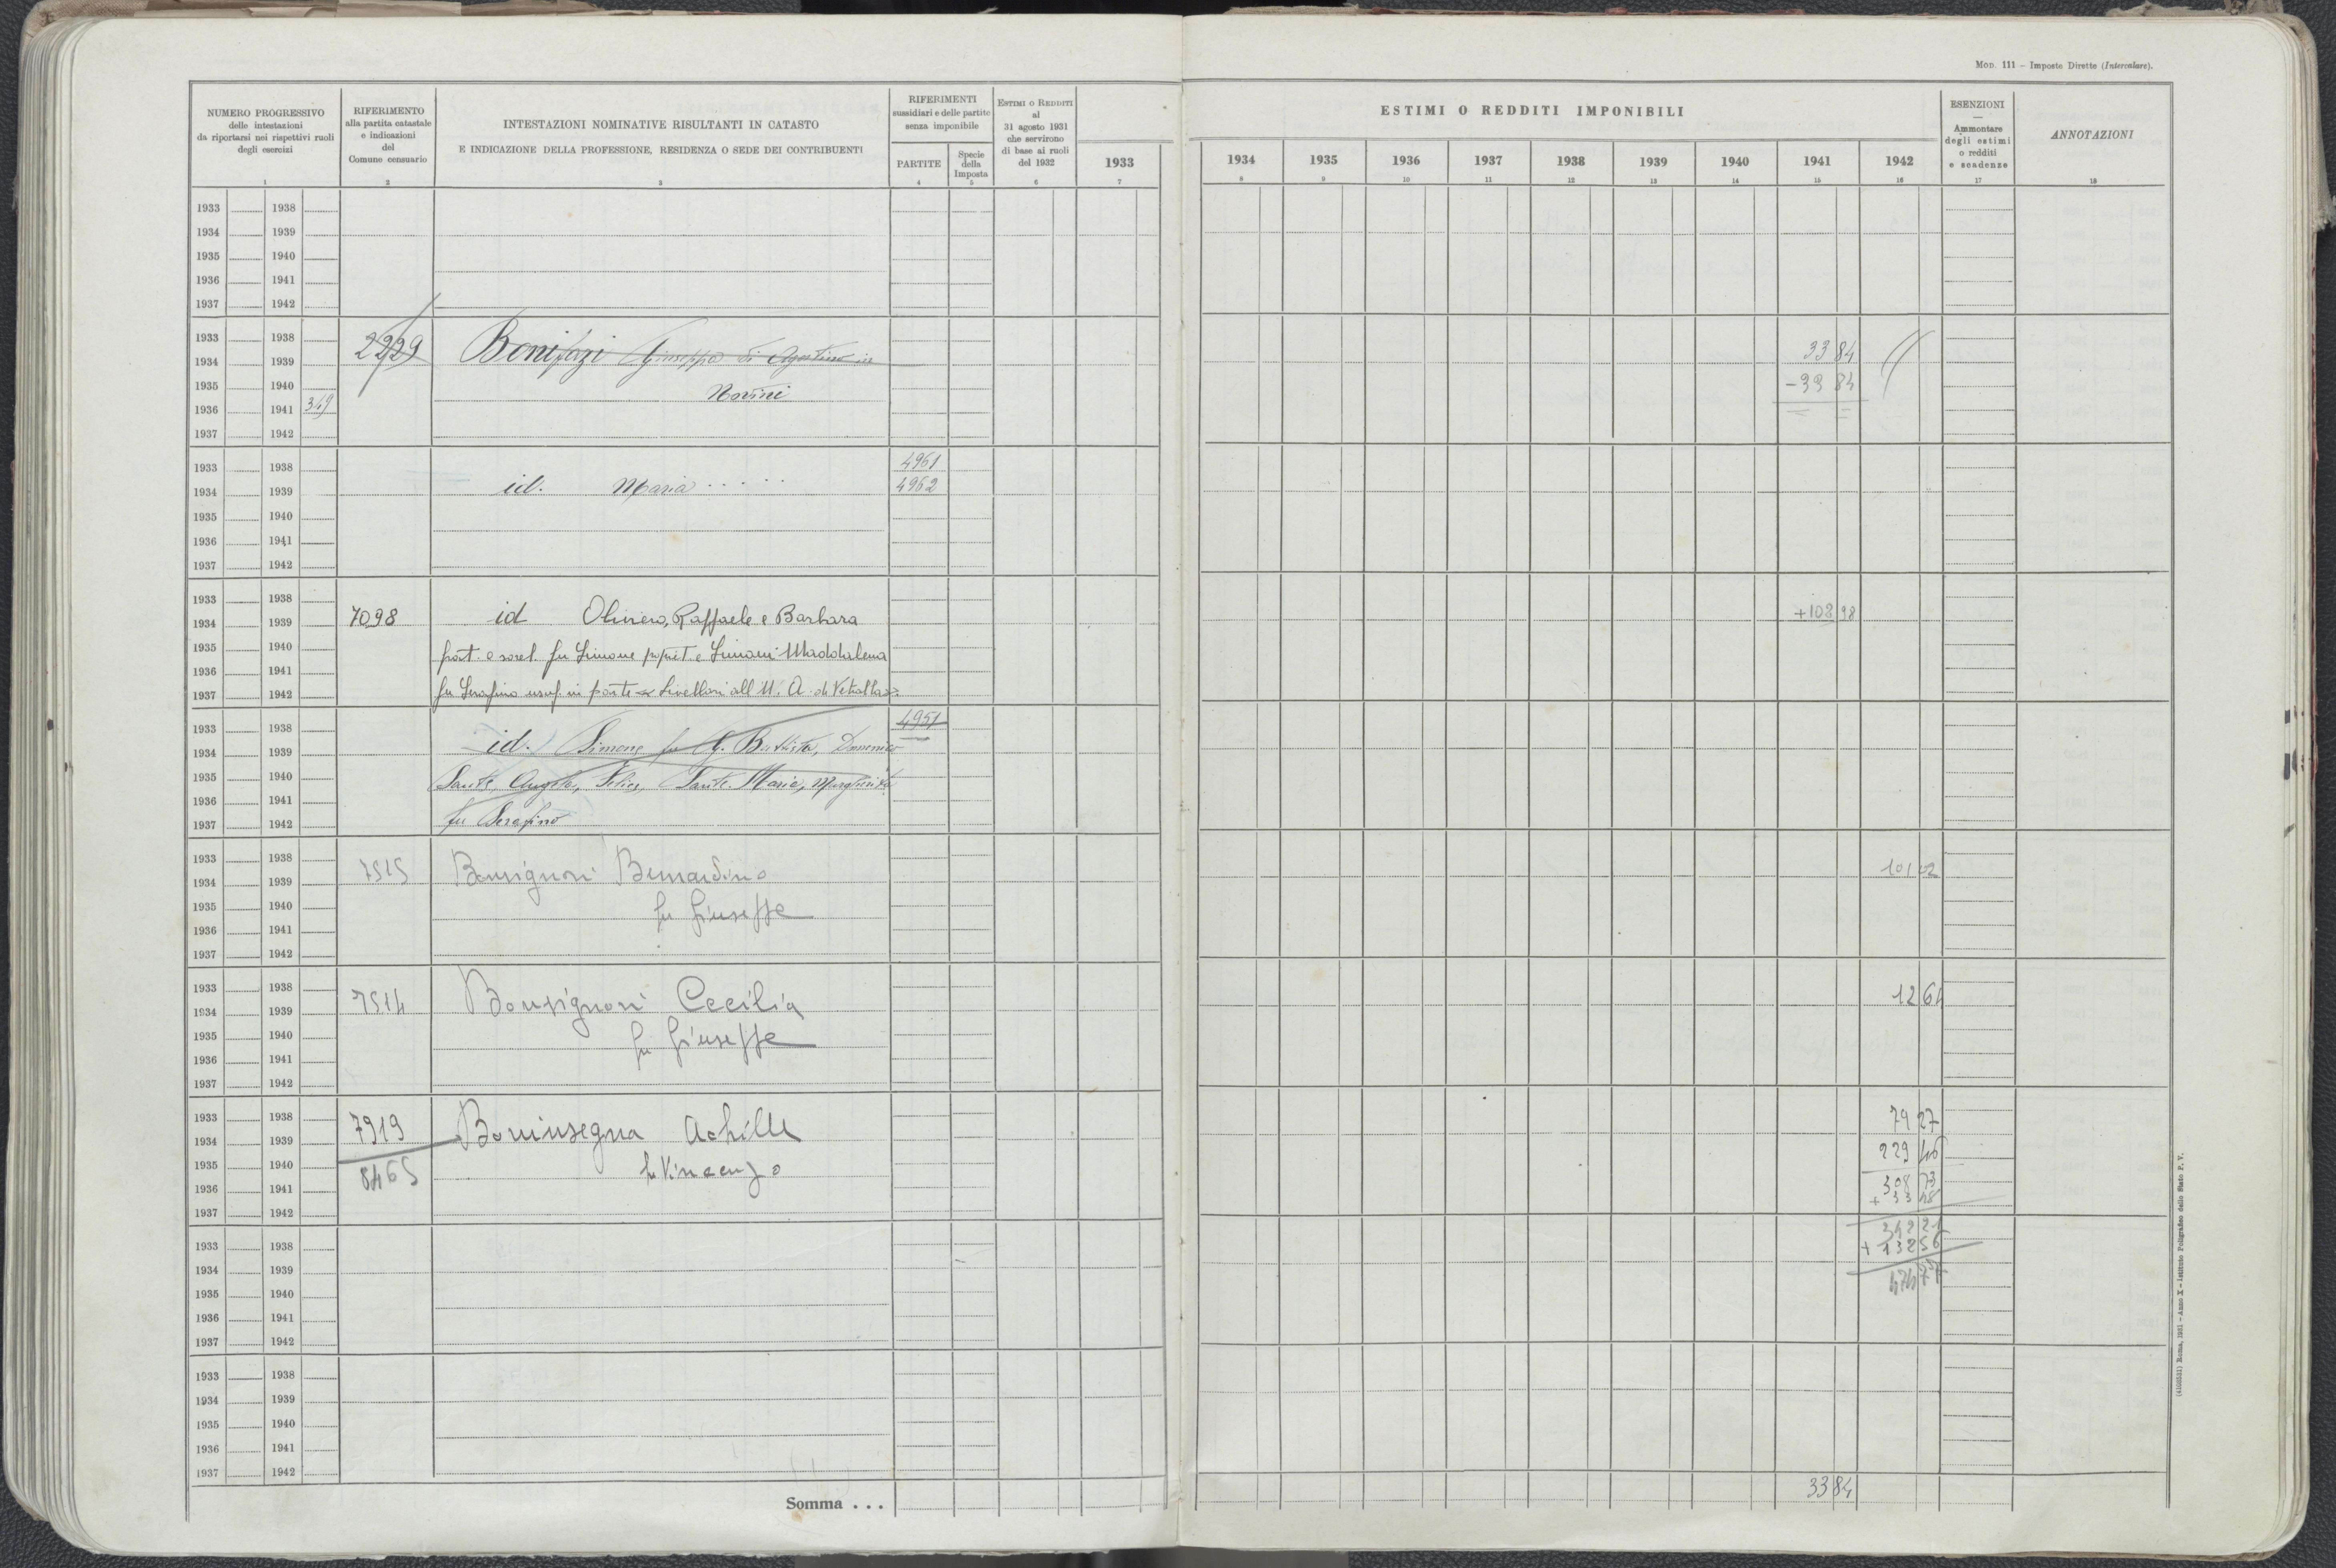 Mod. 111 – Imposte Dirette (Intercalare).
NUMERO PROGRESSIVO
delle intestazioni
da riportarsi nei rispettivi ruoli
degli esercizi
1
RIFERIMENTO
alla partita catastale
e indicazioni
del
Comune censuario
2
INTESTAZIONI NOMINATIVE RISULTANTI IN CATASTO
E INDICAZIONE DELLA PROFESSIONE, RESIDENZA O SEDE DEI CONTRIBUENTI
3
RIFERIMENTI
sussidiari e delle partite
senza imponibile
PARTITE
4
Specie
della
Imposta
5
Estimi o Redditi
al
31 agosto 1931
che servirono
di base ai ruoli
del 1932
6
1933
7
ESTIMI O REDDITI IMPONIBILI
1934 1935 1936 1937 1938 1939 1940 1941 1942
8 9 10 11 12 13 14 15 16
ESENZIONI
—
Ammontare
degli estimi
o redditi
e scadenze
17
ANNOTAZIONI
18
1933 1938
1934 1939
1935 1940
1936 1941
1937 1942
1933 1938
2229 Bonifazi Giuseppa di Agostino in 33 84
1934 1939
1935 1940 Norini – 33 84
1936 1941 349
1937 1942
1933 1938 4961
1934 1939 id. Maria . . . . . 4962
1935 1940
1936 1941
1937 1942
1933 1938
1934 1939 7098 id Oliviero, Raffaele e Barbara +103 98
1935 1940 frat. e sorel. fu Simone propriet. e Maddalena
1936 1941
1937 1942 fu Serafino usuf. in parte Livellari all' U. A. di Vetralla
1933 1938 4951
1934 1939 id. Simone fu G. Battista, Domenico
1935 1940 Sante, Angelo, Felice, Sante Maria, Margherita
1936 1941
1937 1942 fu Serafino
1933 1938
1934 1939 7515 Bonsignori Bernardino 101 02
1935 1940 fu Giuseppe
1936 1941
1937 1942
1933 1938
1934 1939 7514 Bonsignori Cecilia 12 64
1935 1940
1936 1941 fu Giuseppe
1937 1942
1933 1938 79 27
1934 1939 7919 Boninsegna Achille 229 46
1935 1940 8465 fu Vincenzo
1936 1941 308 73
1937 1942 + 33 48
1933 1938 342 21
+ 132 56
1934 1939 474 77
1935 1940
1936 1941
1937 1942
1933 1938
1934 1939
1935 1940
1936 1941
1937 1942
Somma . . . 33 84
(4100531) Roma, 1931 – Anno X – Istituto Poligrafico dello Stato P. V.